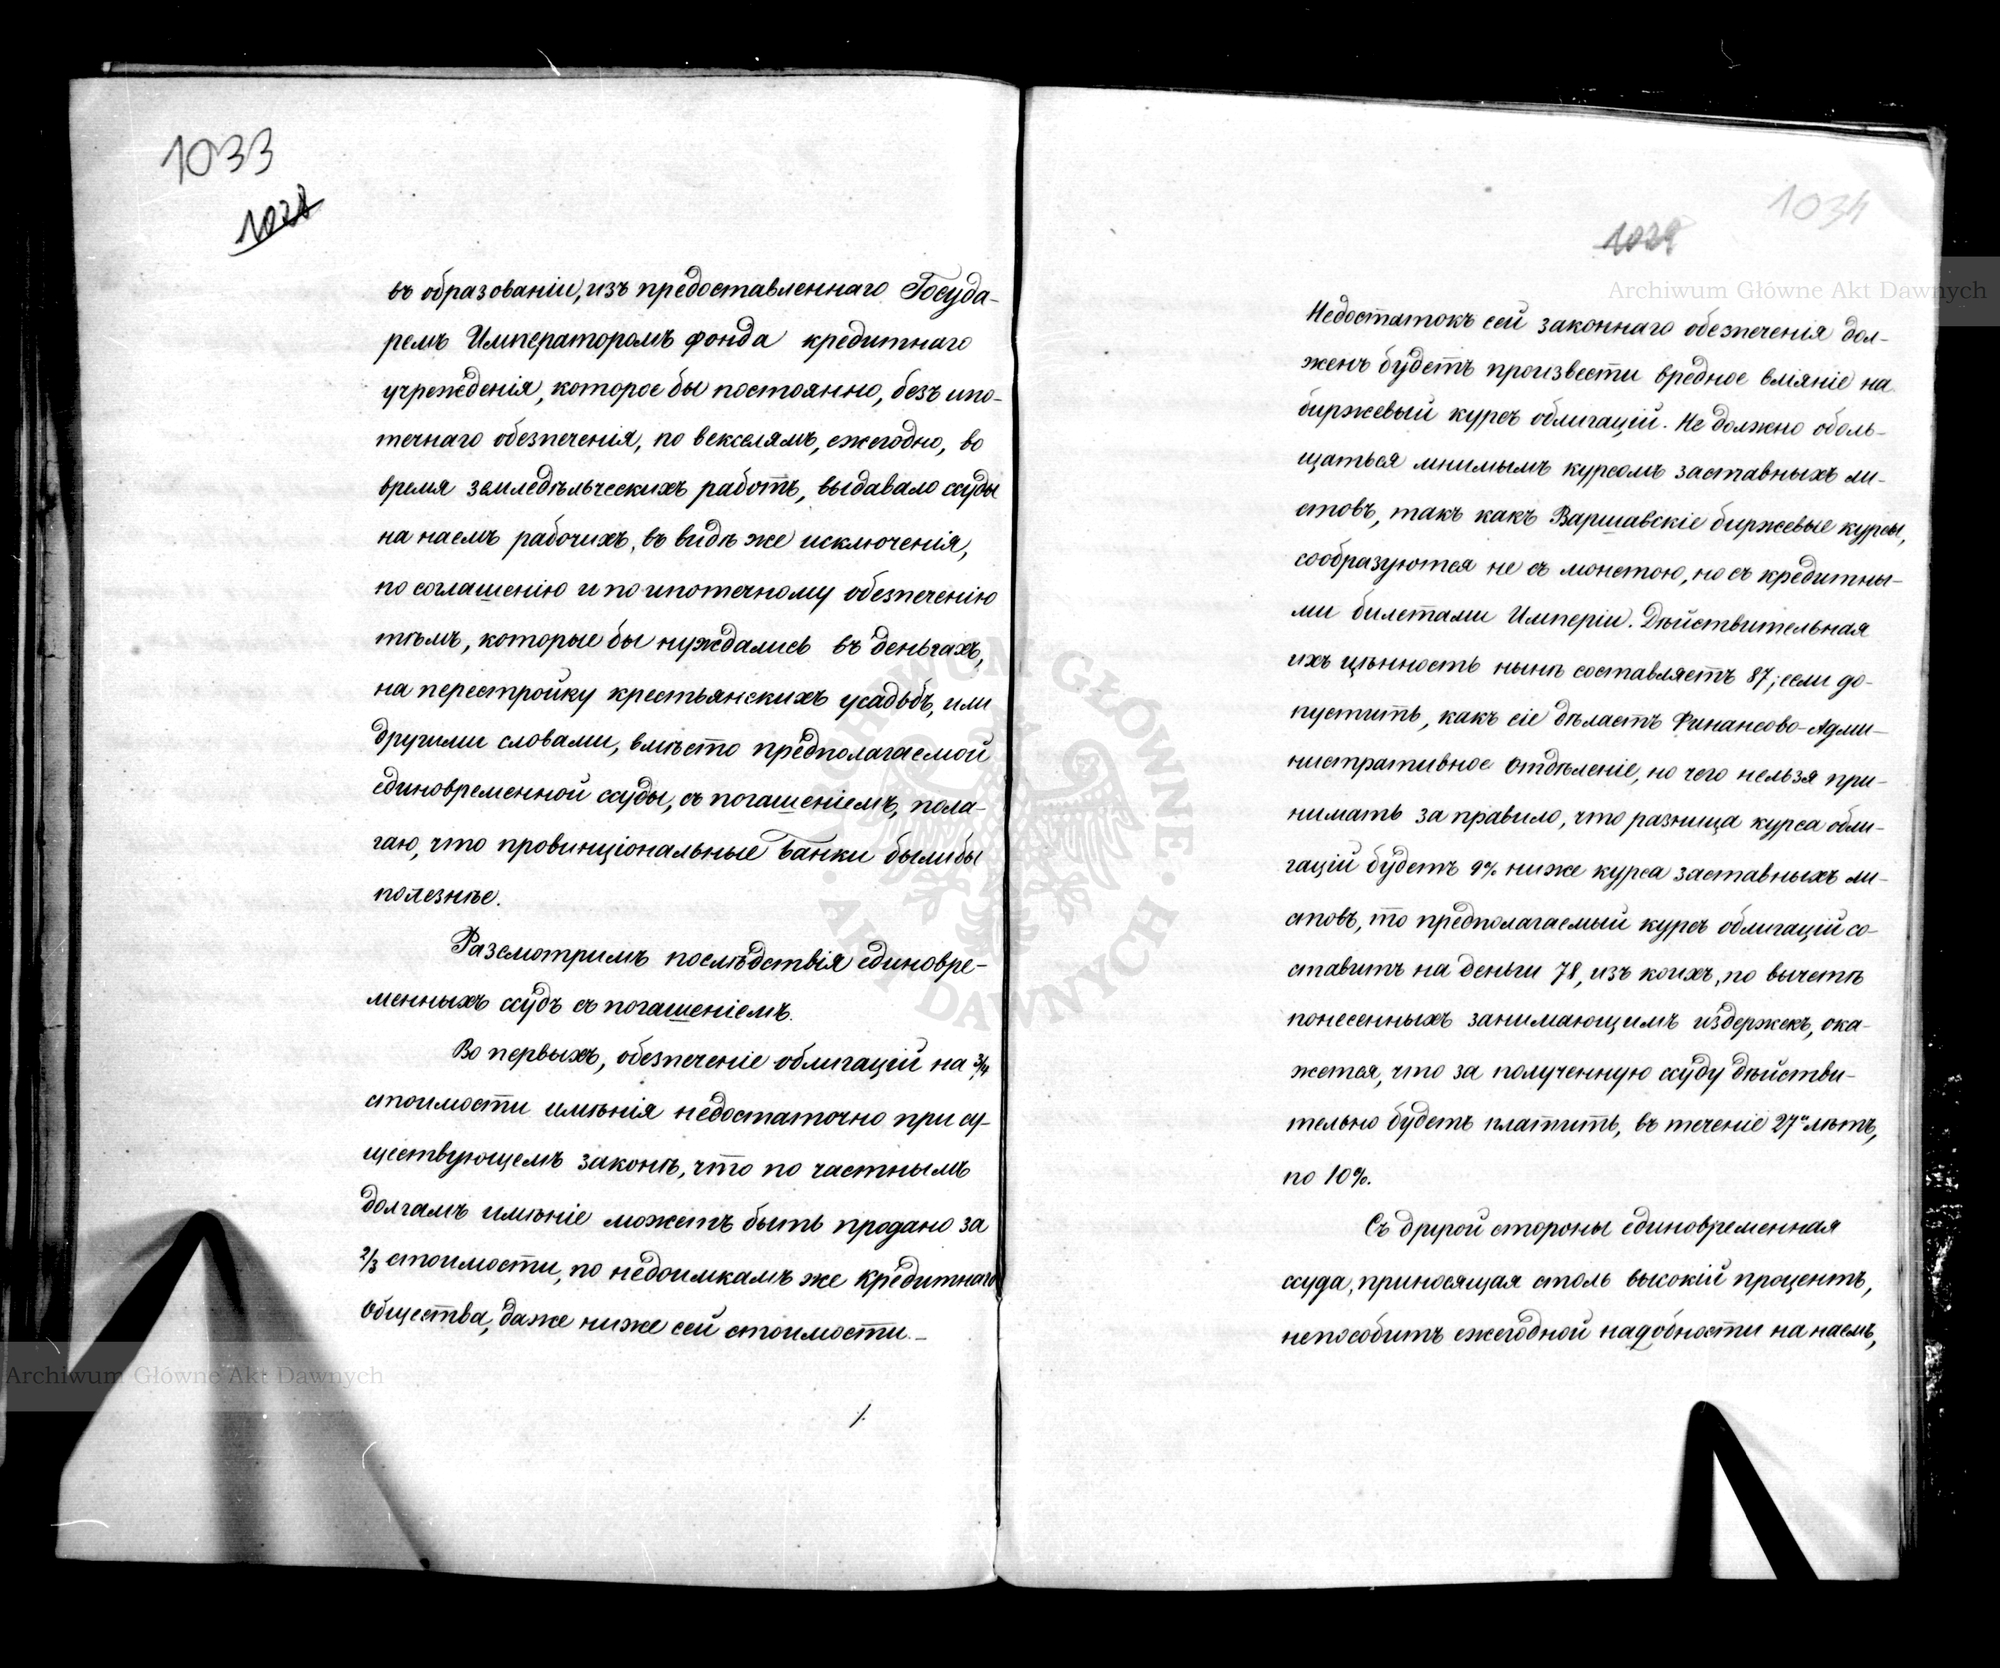 1033
1028
въ образованіи, изъ предоставленнаго Госуда-
ремъ Императоромъ фонда кредитнаго
учрежденія, которое бы постоянно, безъ ипо-
течнаго обезпеченія, по векселямъ, ежегодно, во
время земледѣльческихъ работъ, выдавало ссуды
на наемъ рабочихъ, въ видѣ же исключенія,
по соглашенію и по ипотечному обезпеченію
тѣмъ, которые бы нуждались въ деньгахъ,
на перестройку крестьянскихъ усадьбъ, или
другими словами, вмѣсто предполагаемой
единовременной ссуды, съ погашеніемъ, пола-
гаю, что провинціональные банки были бы
полезнѣе.
Разсмотримъ послѣдствія единовре-
менныхъ ссудъ съ погашеніемъ.
Во первыхъ, обезпеченіе облигацій на 3/4
стоимости имѣнія недостаточно при су-
ществующемъ законѣ, что по частнымъ
долгамъ имѣніе можетъ быть продано за
2/3 стоимости, по недоимкамъ же Кредитнаго
Общества, даже ниже сей стоимости.–
/.
1034
1029
Недостатокъ сей законнаго обезпеченія дол-
женъ будетъ произвести вредное вліяніе на
биржевый курсъ облигацій. Не должно оболь-
щаться мнимымъ курсомъ заставныхъ ли-
стовъ, такъ какъ Варшавскіе биржевые курсы,
сообразуются не съ монетою, но съ кредитны-
ми билетами Имперіи. Дѣйствительная
ихъ цѣнность нынѣ составляетъ 87; если до-
пустить, какъ сіе дѣлаетъ Финансово-Адми-
нистративное Отдѣленіе, но чего нельзя при-
нимать за правило, что разница курса обли-
гацій будетъ 9% ниже курса заставныхъ ли-
стовъ, то предполагаемый курсъ облигацій со-
ставитъ на деньги 78, изъ коихъ, по вычетѣ
понесенныхъ занимающимъ издержекъ, ока-
жется, что за полученную ссуду дѣйстви-
тельно будетъ платить, въ теченіе 27и лѣтъ,
по 10%.
Съ другой стороны единовременная
ссуда, приносящая столь высокій процентъ,
непособитъ ежегодной надобности на наемъ,
Archiwum Główne Akt Dawnych
Archiwum Główne Akt Dawnych
ARCHIWUM GŁÓWNE AKT DAWNYCH